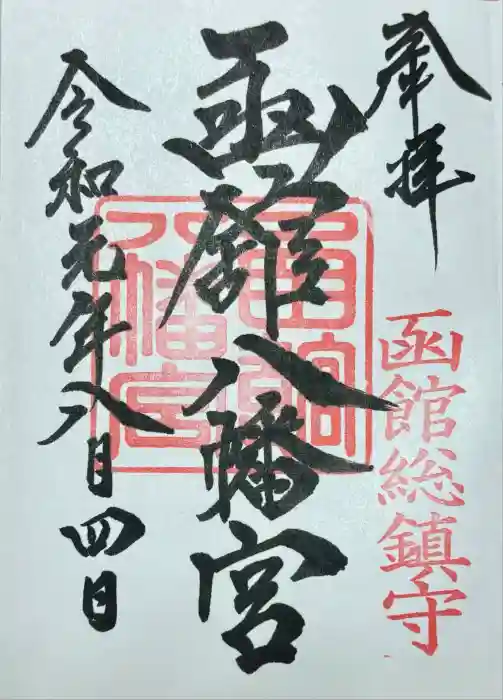 奉拝
函館総鎮守
函館八幡宮
函館八幡宮
令和元年八月四日